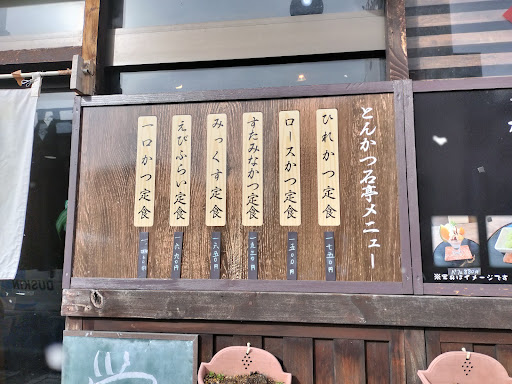 とんかつ石亭メニュー
ひれかつ定食
一七五〇円
ロースかつ定食
一五〇〇円
すたみなかつ定食
一五二〇円
みっくす定食
一六五〇円
えびふらい定食
一六六〇円
一口かつ定食
※写真はイメージです
DUSKIN